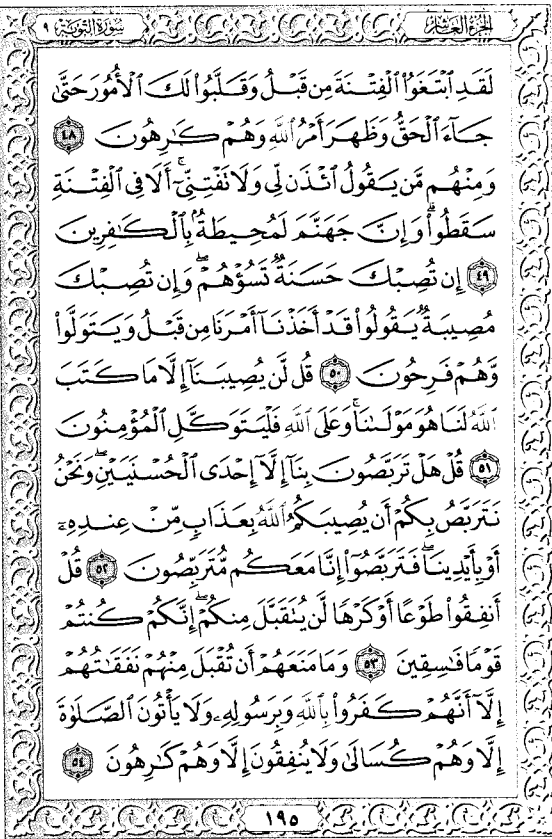 الجزء العاشر سورة التوبة ٩
لَقَدِ ٱبْتَغَوُاْ ٱلْفِتْنَةَ مِن قَبْلُ وَقَلَّبُواْ لَكَ ٱلْأُمُورَ حَتَّىٰ
جَآءَ ٱلْحَقُّ وَظَهَرَ أَمْرُ ٱللَّهِ وَهُمْ كَٰرِهُونَ ٤٨
وَمِنْهُم مَّن يَقُولُ ٱئْذَن لِّى وَلَا تَفْتِنِّىٓ ۚ أَلَا فِى ٱلْفِتْنَةِ
سَقَطُواْ ۗ وَإِنَّ جَهَنَّمَ لَمُحِيطَةٌۢ بِٱلْكَٰفِرِينَ
٤٩ إِن تُصِبْكَ حَسَنَةٌ تَسُؤْهُمْ ۖ وَإِن تُصِبْكَ
مُصِيبَةٌ يَقُولُواْ قَدْ أَخَذْنَآ أَمْرَنَا مِن قَبْلُ وَيَتَوَلَّواْ
وَّهُمْ فَرِحُونَ ٥٠ قُل لَّن يُصِيبَنَآ إِلَّا مَا كَتَبَ
ٱللَّهُ لَنَا هُوَ مَوْلَىٰنَا ۚ وَعَلَى ٱللَّهِ فَلْيَتَوَكَّلِ ٱلْمُؤْمِنُونَ
٥١ قُلْ هَلْ تَرَبَّصُونَ بِنَآ إِلَّآ إِحْدَى ٱلْحُسْنَيَيْنِ ۖ وَنَحْنُ
نَتَرَبَّصُ بِكُمْ أَن يُصِيبَكُمُ ٱللَّهُ بِعَذَابٍ مِّنْ عِندِهِۦٓ
أَوْ بِأَيْدِينَا ۖ فَتَرَبَّصُوٓاْ إِنَّا مَعَكُم مُّتَرَبِّصُونَ ٥٢ قُلْ
أَنفِقُواْ طَوْعًا أَوْ كَرْهًا لَّن يُتَقَبَّلَ مِنكُمْ ۖ إِنَّكُمْ كُنتُمْ
قَوْمًا فَٰسِقِينَ ٥٣ وَمَا مَنَعَهُمْ أَن تُقْبَلَ مِنْهُمْ نَفَقَٰتُهُمْ
إِلَّآ أَنَّهُمْ كَفَرُواْ بِٱللَّهِ وَبِرَسُولِهِۦ وَلَا يَأْتُونَ ٱلصَّلَوٰةَ
إِلَّا وَهُمْ كُسَالَىٰ وَلَا يُنفِقُونَ إِلَّا وَهُمْ كَٰرِهُونَ ٥٤
١٩٥